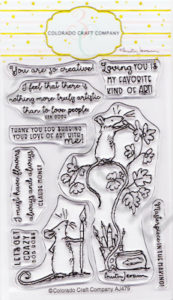 COLORADO CRAFT COMPANY
You are so creative!
Loving YOU IS
MY FAVORITE
KIND OF ART!
I feel that there is
nothing more truly artistic
than to love people
VAN GOGH
THANK YOU FOR SHARING
YOUR LOVE OF ART WITH
me!
I must have flowers
always and always
CLAUDE MONET
LET'S GET
CRAZY
BOB ROSS
©Colorado Craft Company AJ479